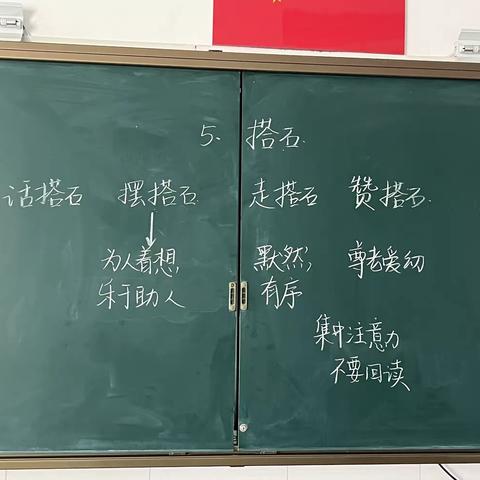 5、搭石
话搭石 摆搭石 走搭石 赞搭石
为人着想, 默然, 尊老爱幼
乐于助人 有序
集中注意力
不要回读